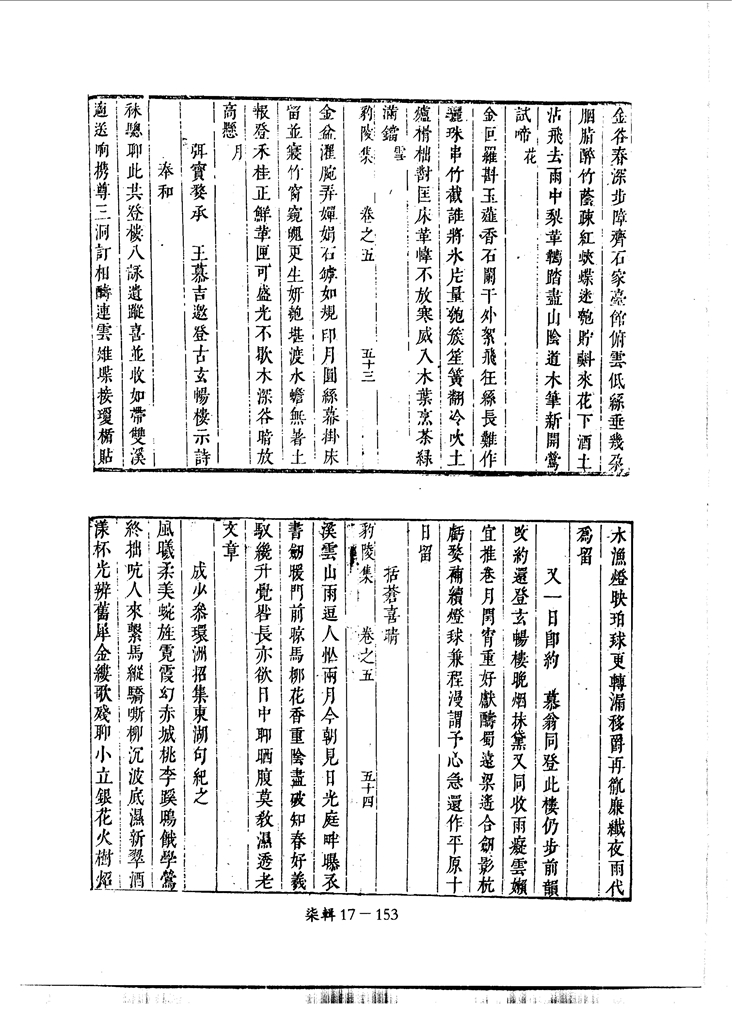 金谷春深步障齊石家臺館俯雲低絲垂幾朶
胭脂醉竹蔭疎紅蛺蝶迷匏貯蝌來花下酒土
沾飛去雨中梨革鞨踏盡山陰道木筆新開鶯
試啼花
金叵羅斟玉薤香石闌干外絮飛狂絲長難作
驪珠串竹截誰將氷片量匏簇笙簧翻冷吹土
爐榾柮對匡床革幃不放寒威入木葉烹茶緑
滿鐺雪
豹陵集 卷之五 五十三
金盆濯腕弄嬋娟石鏬如規印月圓絲幕掛床
留並寢竹窗窺魄更生妍匏堪渡水蟾無暑土
報登禾桂正鮮革匣可盛光不歇木深谷暗放
高懸月
弭寳婺承 王慕吉邀登古玄暢樓示詩
奉和
秣驄聊此共登樓八詠遺蹤喜並收如帶雙溪
迤送响携尊三洞訂相酬連雲雉堞接瓊楯貼
水漁燈映珀球更轉漏移爵再飲廉纖夜雨代
爲留
又一日卽約 慕翁同登此樓仍步前韻
改約還登玄暢樓晚烟抹黛又同收雨癡雲嬾
宜推巻月閏宵重好獻酬蜀遠梁遙合劒影杭
虧婺補續燈球兼程漫謂予心急還作平原十
日留
括蒼喜晴
豹陵集 卷之五 五十四
溪雲山雨逗人怂兩月今朝見日光庭畔曝衣
書劒暖門前晾馬栁花香重陰盡破知春好羲
馭纔升覺晷長亦欲日中聊晒腹莫敎濕透老
文章
成少叅環洲招集東湖句紀之
風曦柔美蜿旌霓霞幻赤城桃李蹊鴟餓學鶯
終拙吭人來繫馬縱驕嘶柳沉波底濕新翠酒
漾杯光辨舊犀金縷歌殘聊小立銀花火樹炤
柒輯 17－153